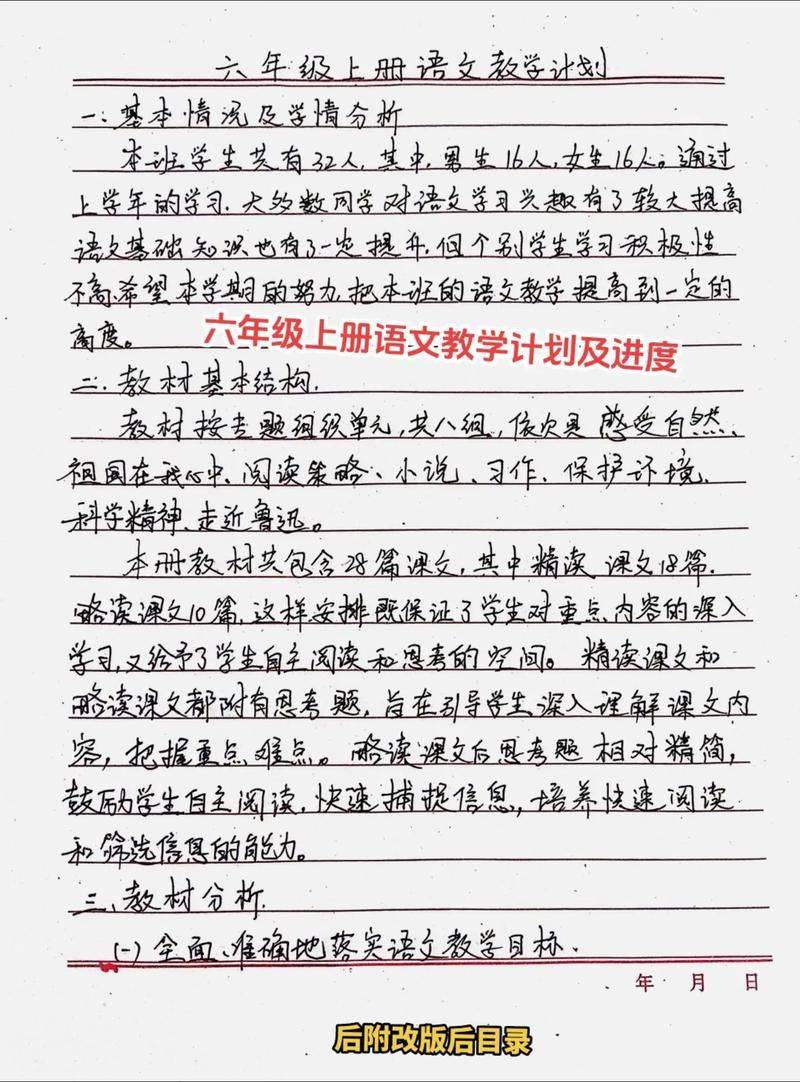 六年级上册语文教学计划
一、基本情况及学情分析
本班学生共有32人,其中,男生16人,女生16人。通过
上学年的学习,大多数同学对语文学习兴趣有了较大提高
语文基础知识也有了一定提升,但个别学生学习积极性
不高,希望本学期的努力,把本班的语文教学提高到一定的
高度。
六年级上册语文教学计划及进度
二、教材基本结构.
教材按专题组织单元,共八组,依次是感受自然、
祖国在我心中、阅读策略、小说、习作、保护环境、
科学精神、走近鲁迅。
本册教材共包含28篇课文,其中精读课文18篇.
略读课文10篇,这样安排既保证了学生对重点内容的深入
学习,又给予了学生自主阅读和思考的空间。精读课文和
略读课文都附有思考题,旨在引导学生深入理解课文内
容,把握重点难点。略读课文后思考题相对精简,
鼓励学生自主阅读,快速捕捉信息,培养快速阅读
和筛选信息的能力。
三、教材分析.
(一)全面、准确地落实语文教学目标.
年 月 日
后附改版后目录